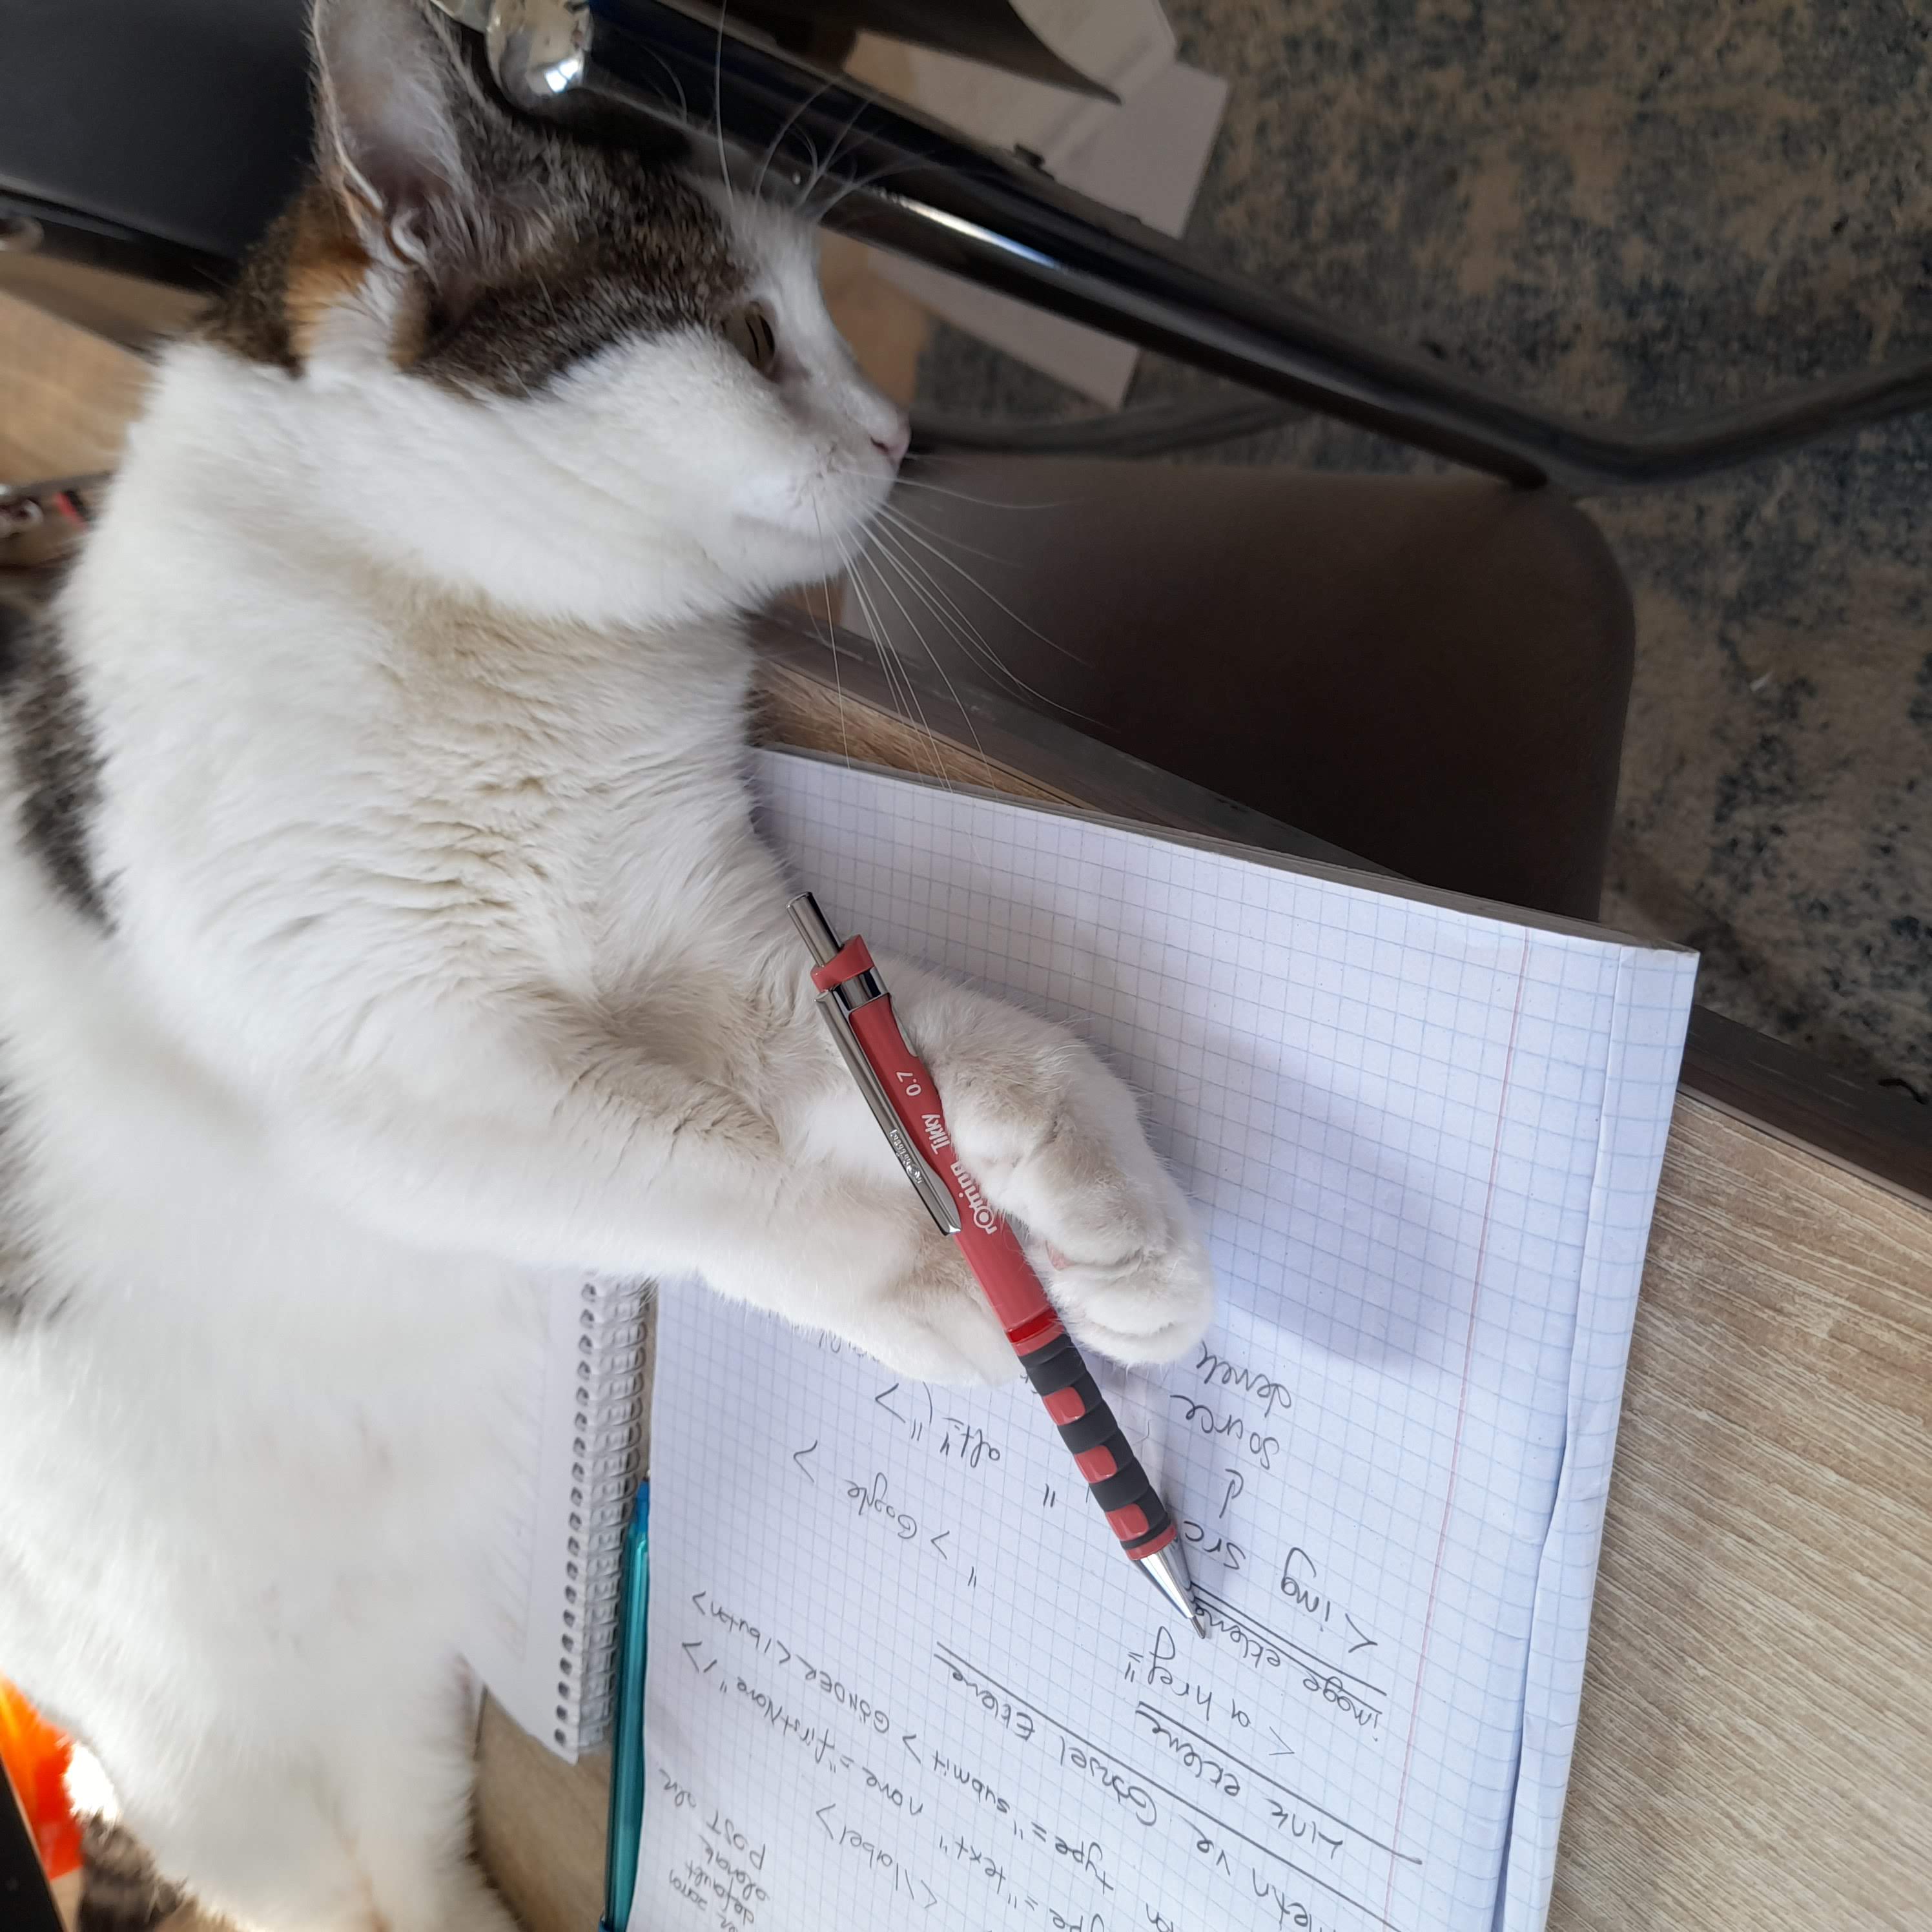 default
olarak
POST
</label>
type="text" name="firstName"/>
type="submit"> GÖNDER </button>
ve Görsel Ekleme
Link ekleme
<a href=" "> Google >
image ekleme
<img src " " alt="(">
source
demek
rotring Tikky 0.7